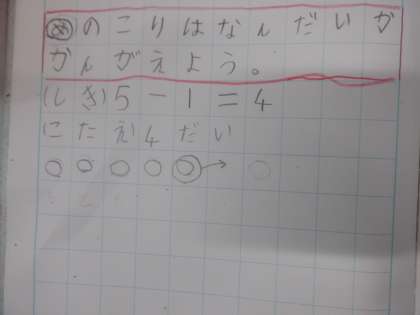 めのこりはなんだいか
かんがえよう。
(しき)5-1=4
こたえ4だい